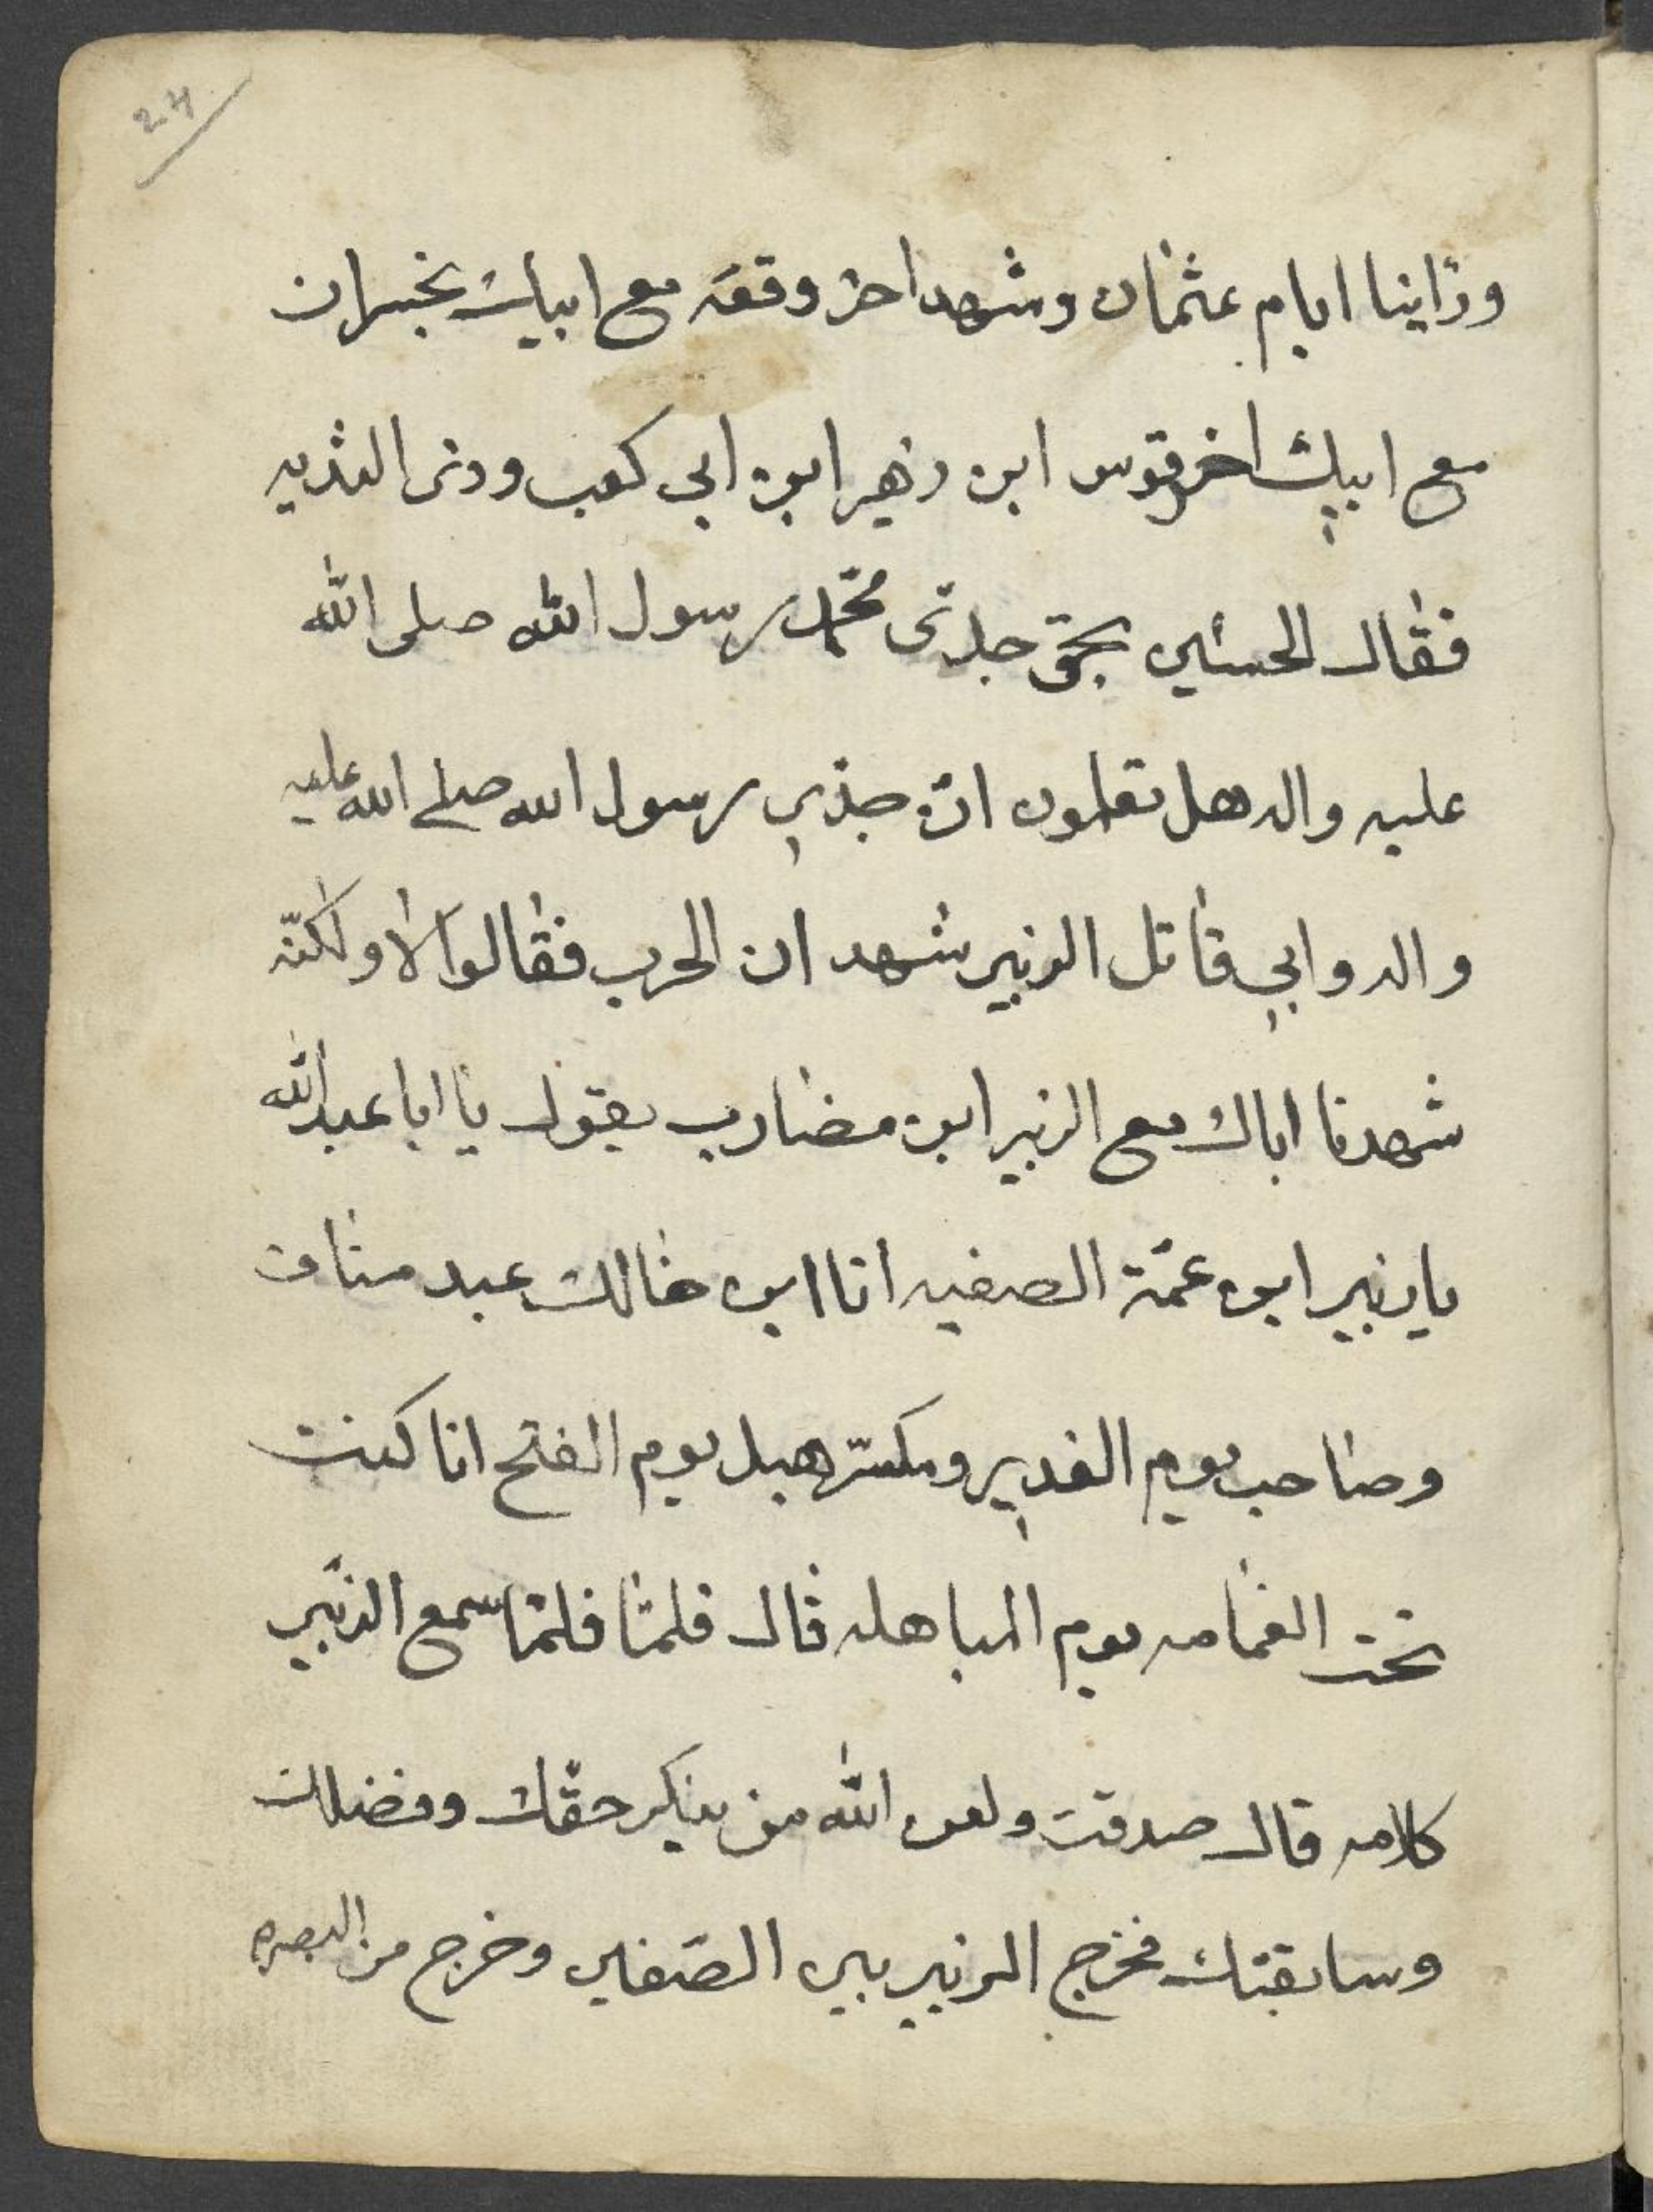 24
وراينا ايام عثمان وشهد اخر وقعه مع ابيك بخبران
مع ابيك اخرقوس ابن زهير ابن ابي كعب وذى الثديه
فقال الحسين بحق جدى محمد رسول الله صلى الله
عليه واله هل تعلمون انّ جدّي رسول الله صلى الله عليه
واله وابي قاتل الزبير شهد ان الحرب فقالوا لا ولكنّه
شهدنا اباك مع الزبير ابن مضارب يقول يا ابا عبد الله
يا زبير ابن عمّة الصفيه انا ابن خالك عبد مناف
وصاحب يوم الغدير ومكسّر هبل يوم الفتح انا كنت
تحت الغمامه يوم المباهله قال فلمّا فلمّا سمع الزبير
كلامه قال صدقت ولعن الله من ينكر حقّك وفضلك
وسابقتك فخرج الزبير بين الصّفين وخرج من البصره